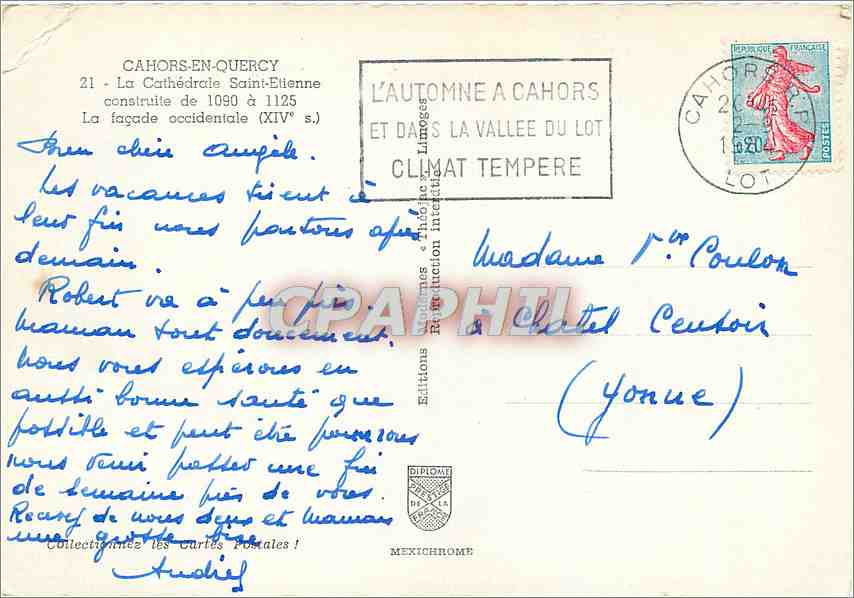 CAHORS-EN-QUERCY
21 - La Cathédrale Saint-Etienne
construite de 1090 à 1125
La façade occidentale (XIVe s.)
L'AUTOMNE A CAHORS
ET DANS LA VALLEE DU LOT
CLIMAT TEMPERE
CAHORS R.P.
LOT
REPUBLIQUE FRANÇAISE
POSTES
Bien chère Angèle.
Les vacances tirent à
leur fin nous partons après
demain.
Robert va à peu près.
Maman tout doucement.
Nous vous espérons en
aussi bonne santé que
possible et peut être pourrons
nous venir passer une fin
de semaine près de vous.
Recevez de nous deux et Maman
une grosse bise
Collectionnez les Cartes Postales !
Editions Modernes « Théojac » Limoges
Reproduction interdite
CPAPHIL
Madame Vve Coulon
à Chatel Censoir
(Yonne)
DIPLOME
PRESTIGE
DE LA
FRANCE
MEXICHROME